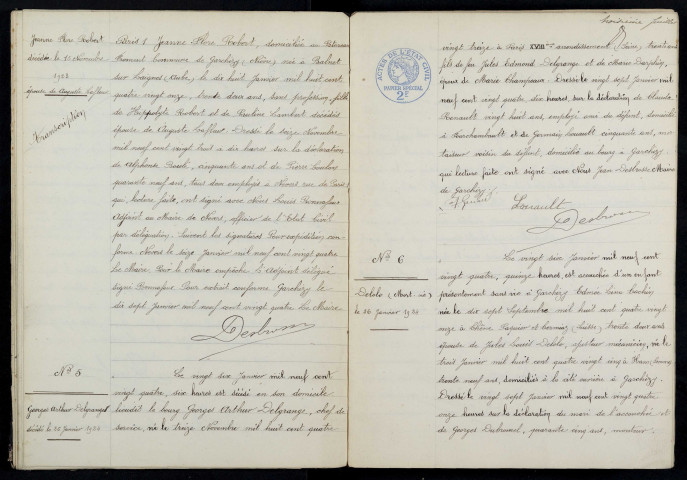 Jeanne Flore Robert
décédée le 15 Novembre
1923
épouse de Auguste Lafleur
Transcription
Paris 1 Jeanne Flore Robert, domiciliée au
commune de Garchizy (Nièvre, née à Balnot
sur Laignes (Aube), le dix huit Janvier mil huit cent
quatre vingt onze, trente deux ans, sans profession, fille
de Hippolyte Robert et de Pauline Lambert décédés
épouse de Auguste Lafleur. Dressé le seize Novembre
mil neuf cent vingt trois à dix heures sur la déclaration
de Alphonse cinquante ans et de Pierre
quarante neuf ans, tous deux employés à Nevers rue de Paris
qui, lecture faite, ont signé avec Nous Louis Bonnefous
adjoint au Maire de Nevers, officier de l'Etat Civil
par délégation. Suivent les signatures Pour expédition con-
forme Nevers le seize Janvier mil neuf cent vingt quatre
Le Maire Pour le Maire empêché l'adjoint délégué
signé Bonnefous Pour extrait conforme Garchizy le
dix sept Janvier mil neuf cent vingt quatre Le Maire
N° 5
Georges Arthur Delgrange
décédé le 26 Janvier 1924
Le vingt six Janvier mil neuf cent
vingt quatre, six heures est décédé en son domicile
lieudit le bourg Georges Arthur Delgrange, chef de
service, né le treize Novembre mil huit cent quatre
troisième feuillet
ACTES DE L'ETAT CIVIL
PAPIER SPECIAL
2F
vingt treize à Paris XVIIIe arrondissement (Seine, trente ans
fils de feu Jules Edmond Delgrange et de Marie Dauphin,
époux de Marie Champeaux. Dressé le vingt sept Janvier mil
neuf cent vingt quatre dix heures, sur la déclaration de Claude
Renault vingt huit ans, employé ami du défunt, domicilié
à et de Germain Louault cinquante ans,
voisin du défunt, domicilié au bourg à Garchizy
qui lecture faite ont signé avec Nous Jean Desbrosses Maire
de Garchizy
Louault
N° 6
Delolo (Mort-né)
le 26 Janvier 1924
Le vingt six Janvier mil neuf cent
vingt quatre, quinze heures est accouchée d'un enfant
présentement sans vie à Garchizy Edmée
née le dix sept Septembre mil huit cent quatre vingt
onze à (Suisse) trente deux ans
épouse de Jules Louis Delolo, ajusteur mécanicien, né le
trois Janvier mil huit cent quatre vingt cinq à
trente neuf ans, domiciliés à la cité ouvrière à Garchizy.
Dressé le vingt sept Janvier mil neuf cent vingt quatre
onze heures sur la déclaration du mari de l'accouchée et
de Georges quarante cinq ans, monteur.